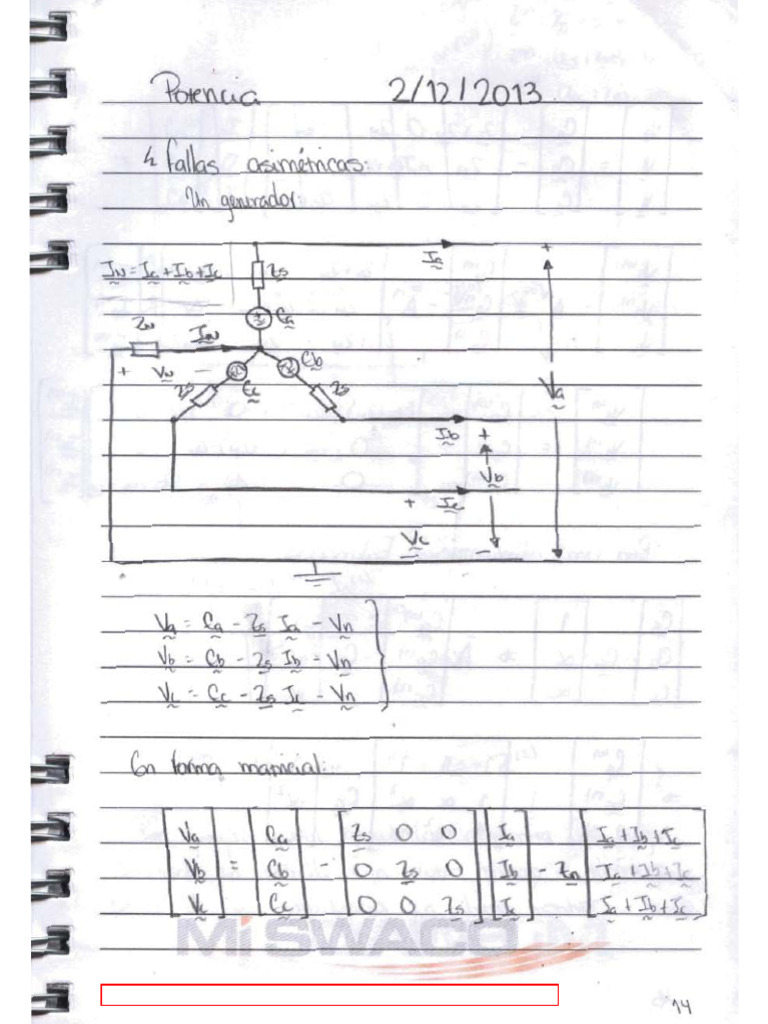 Potencia 2/12/2013
↳ Fallas asimétricas:
Un generador
Ia +
IN = Ia + Ib + Ic Zs
Ea
Zn IN Eb
+ Vn Ec
Zs Zs Va
Ib +
Vb
+ Ic
Vc −
Va = Ea − Zs Ia − Vn
Vb = Eb − Zs Ib − Vn
Vc = Ec − Zs Ic − Vn
En forma matricial:
Va Ea Zs 0 0 Ia Ia + Ib + Ic
Vb = Eb − 0 Zs 0 Ib − Zn Ia + Ib + Ic
Vc Ec 0 0 Zs Ic Ia + Ib + Ic
Mi SWACO
14